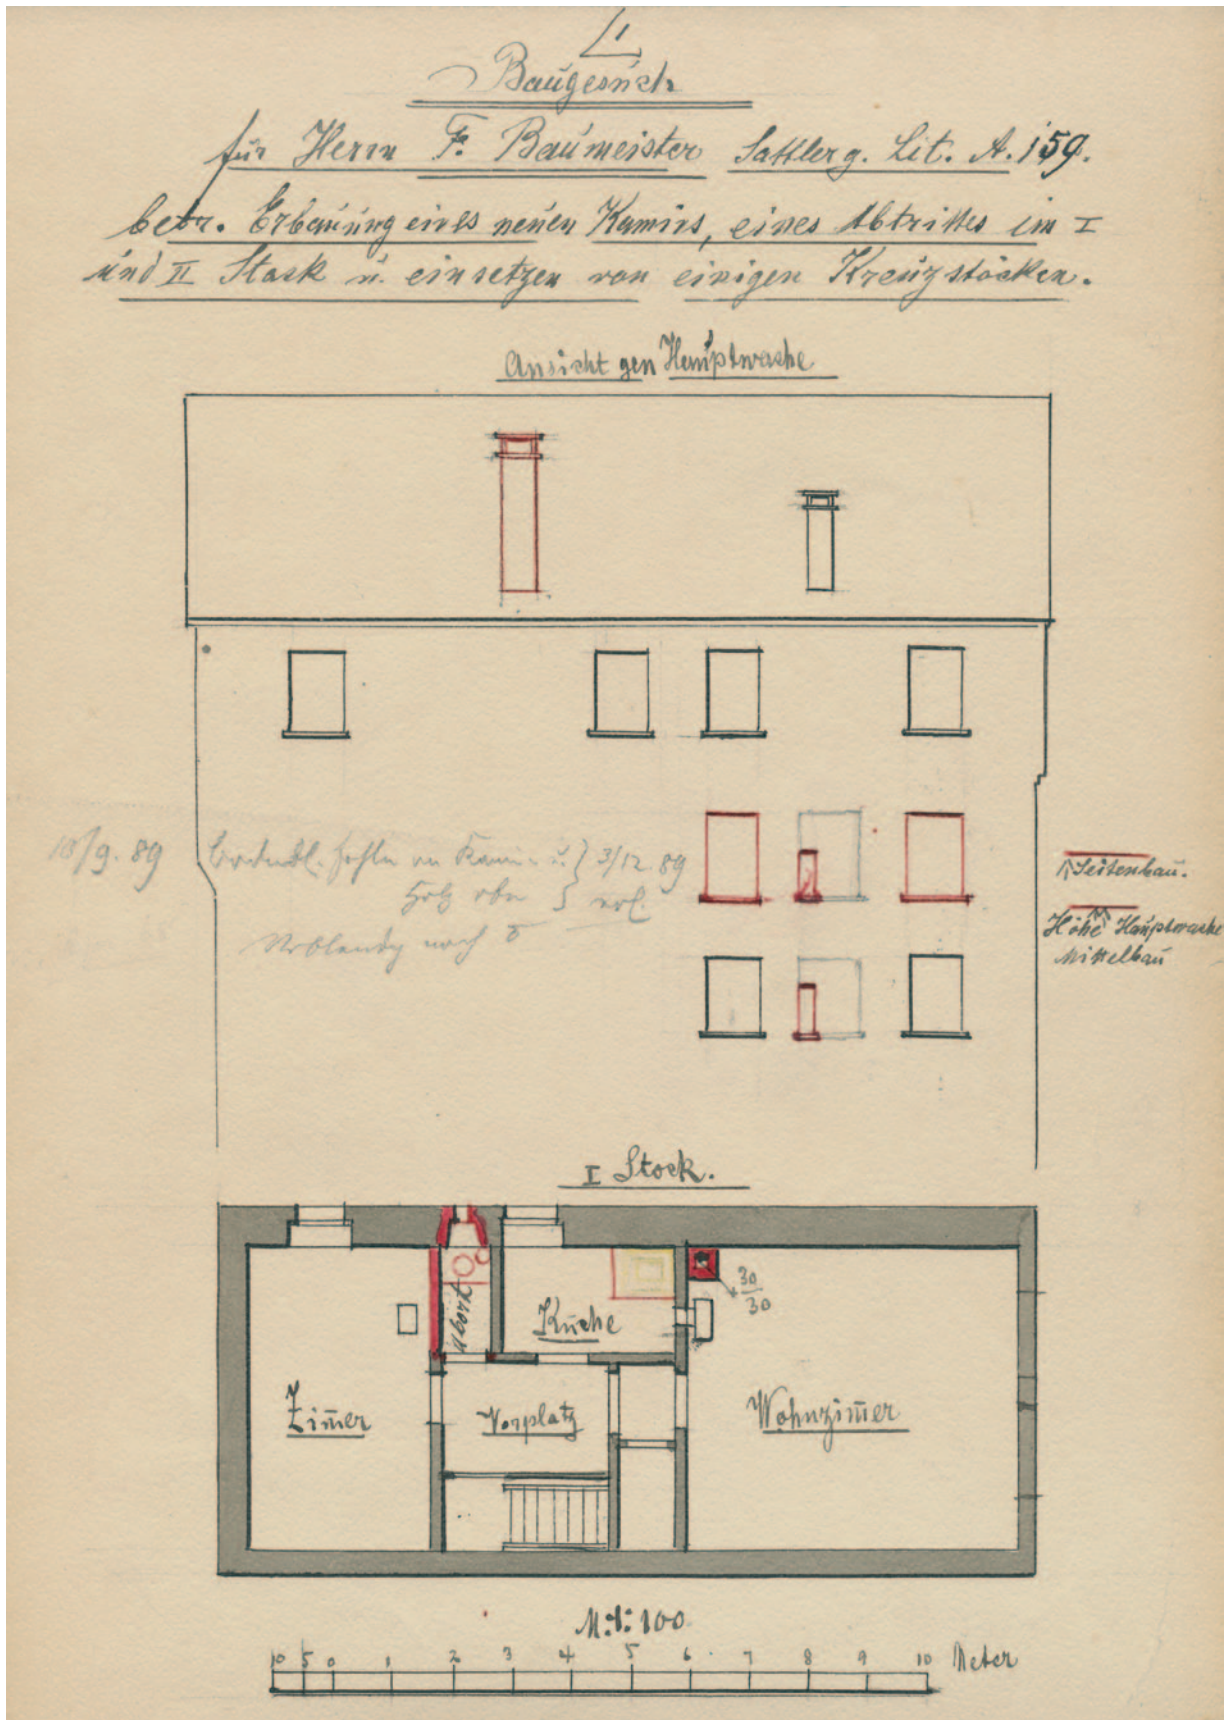 1
Baugesuch
für Herrn F. Baumeister Sattler g. Lit. A. 159.
betr. Erbauung eines neuen Kamins, eines Abtrittes im I
und II Stock u. einsetzen von einigen Kreuzstöcken.
Ansicht gen Hauptwache
18/9. 89 fehlen 3/12. 89
Seitenbau.
Höhe Hauptwache
Mittelbau
I Stock.
30
30
Abort
Küche
Zimer
Vorplatz
Wohnzimer
M. 1:100
10 5 0 1 2 3 4 5 6 7 8 9 10 Meter